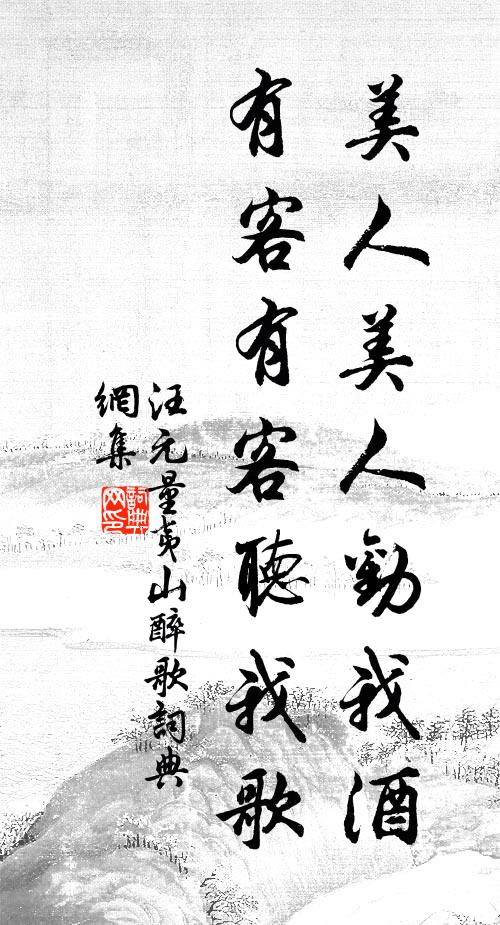 美人美人勸我酒
有客有客聽我歌
汪元量夷山醉歌詞典
網集
詞典网印